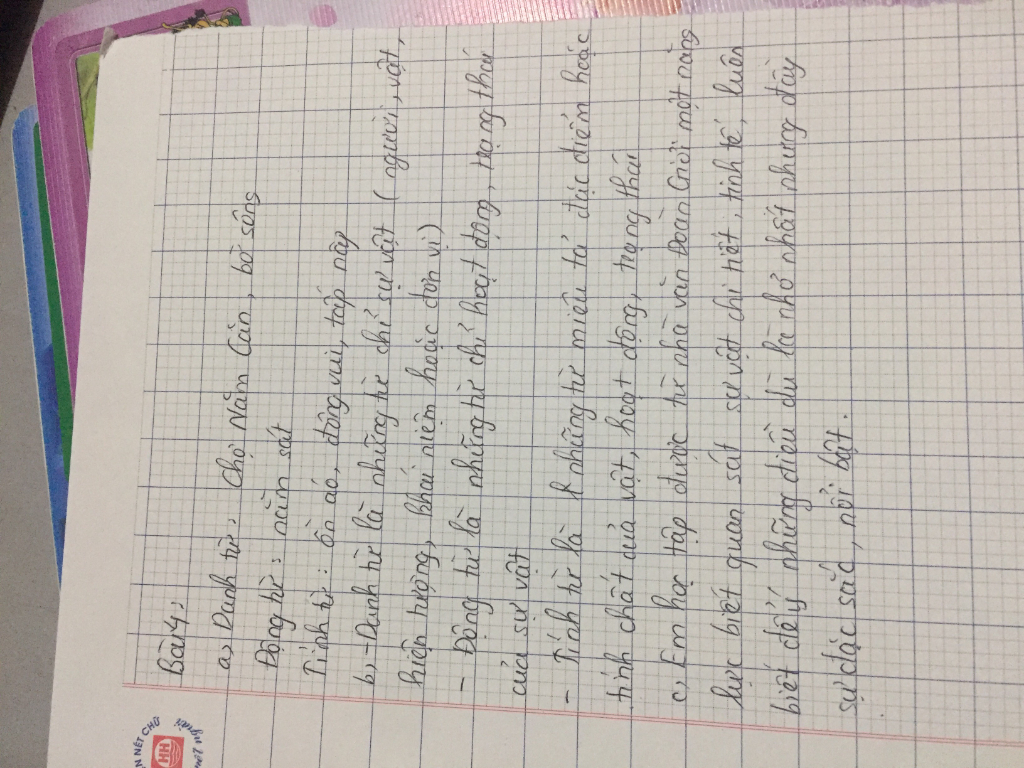 Bài 4:
a, Danh từ: Chợ Năm Căn, bờ sông
Động từ: nằm sát
Tính từ: ồn ào, đông vui, tấp nập
b, - Danh từ là những từ chỉ sự vật (người, vật,
hiện tượng, khái niệm hoặc đơn vị)
- Động từ là những từ chỉ hoạt động, trạng thái
của sự vật
- Tính từ là những từ miêu tả đặc điểm hoặc
tính chất của vật, hoạt động, trạng thái
c, Em học tập được từ nhà văn Đoàn Giỏi một năng
lực biết quan sát sự vật chi tiết, tinh tế, luôn
biết để ý những điều dù là nhỏ nhất nhưng đầy
sự đặc sắc, nổi bật.
N NÉT CHỮ
HH